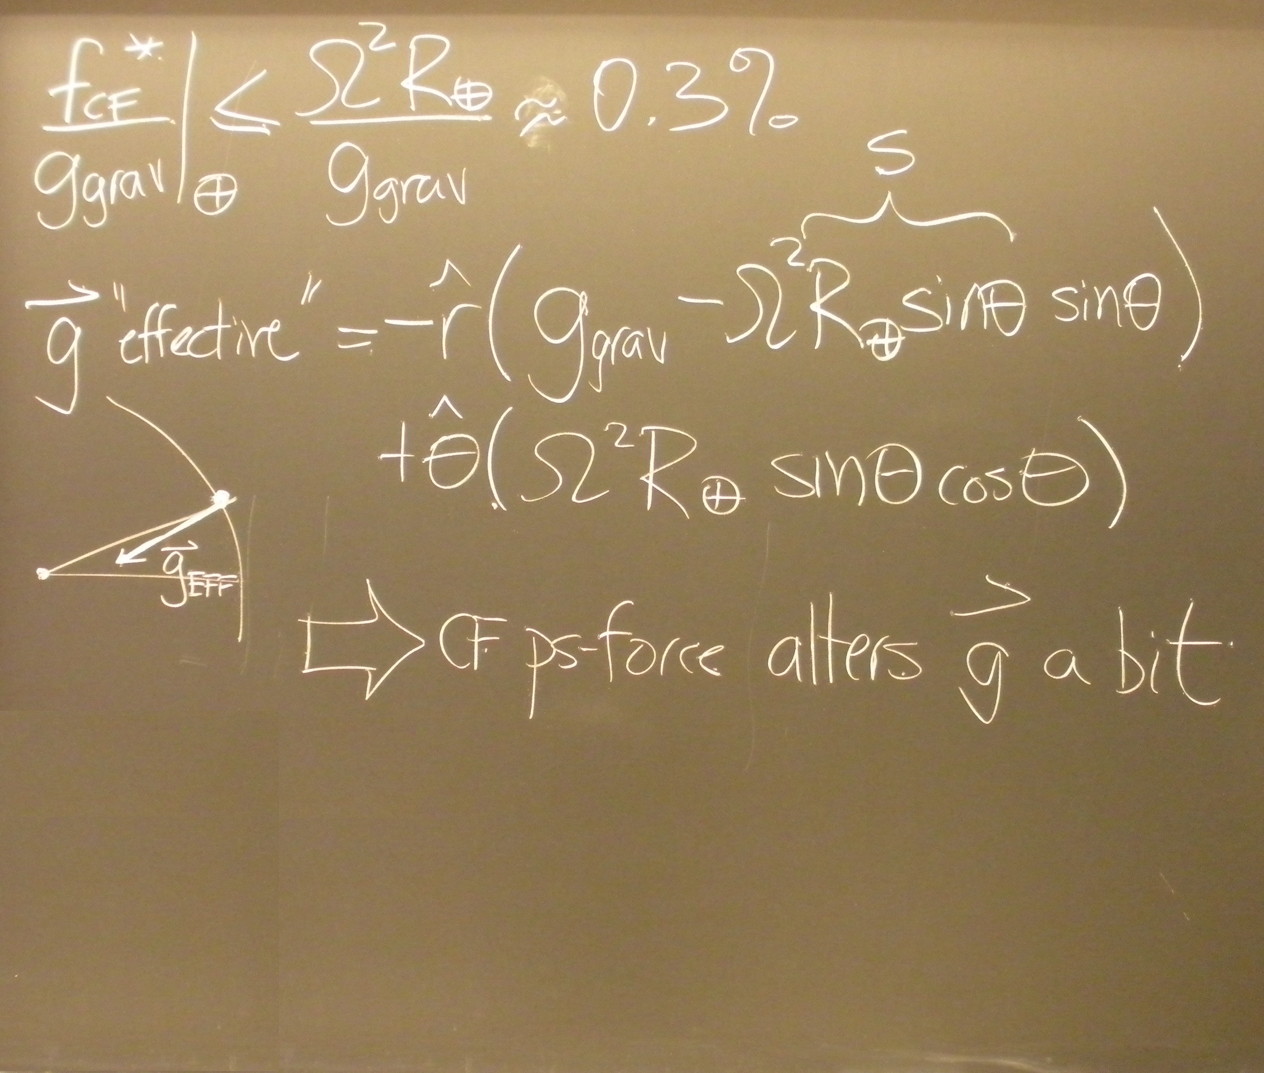 f_CF*/g_grav|_⊕ ≤ Ω²R_⊕/g_grav ≈ 0.3%
s
g⃗ "effective" = -r̂(g_grav - Ω²R_⊕ sinθ sinθ)
+θ̂(Ω²R_⊕ sinθ cosθ)
g⃗_EFF
⇒ CF ps-force alters g⃗ a bit.